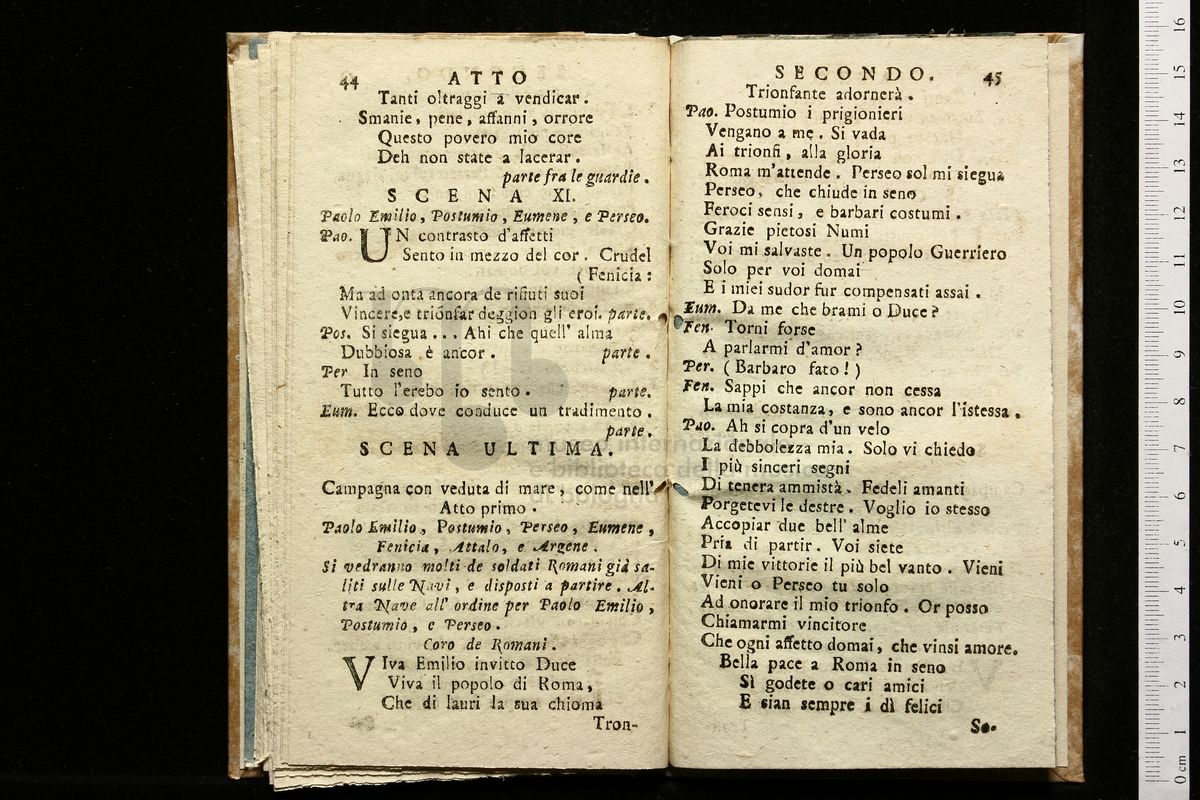 44 ATTO
Tanti oltraggi a vendicar.
Smanie, pene, affanni, orrore
Questo povero mio core
Deh non state a lacerar.
parte fra le guardie.
SCENA XI.
Paolo Emilio, Postumio, Eumene, e Perseo.
Pao. UN contrasto d'affetti
Sento in mezzo del cor. Crudel
(Fenicia:
Ma ad onta ancora de rifiuti suoi
Vincere, e trionfar deggion gli eroi. parte.
Pos. Si siegua... Ahi che quell' alma
Dubbiosa è ancor. parte.
Per In seno
Tutto l'erebo io sento. parte.
Eum. Ecco dove conduce un tradimento.
parte.
SCENA ULTIMA.
Campagna con veduta di mare, come nell'
Atto primo.
Paolo Emilio, Postumio, Perseo, Eumene,
Fenicia, Attalo, e Argene.
Si vedranno molti de soldati Romani già sa-
liti sulle Navi, e disposti a partire. Al-
tra Nave all' ordine per Paolo Emilio,
Postumio, e Perseo.
Coro de Romani.
VIva Emilio invitto Duce
Viva il popolo di Roma,
Che di lauri la sua chioma
Tron-
SECONDO. 45
Trionfante adornerà.
Pao. Postumio i prigionieri
Vengano a me. Si vada
Ai trionfi, alla gloria
Roma m'attende. Perseo sol mi siegua
Perseo, che chiude in seno
Feroci sensi, e barbari costumi.
Grazie pietosi Numi
Voi mi salvaste. Un popolo Guerriero
Solo per voi domai
E i miei sudor fur compensati assai.
Eum. Da me che brami o Duce?
Fen. Torni forse
A parlarmi d'amor?
Per. (Barbaro fato!)
Fen. Sappi che ancor non cessa
La mia costanza, e sono ancor l'istessa.
Pao. Ah si copra d'un velo
La debbolezza mia. Solo vi chiedo
I più sinceri segni
Di tenera ammistà. Fedeli amanti
Porgetevi le destre. Voglio io stesso
Accopiar due bell' alme
Pria di partir. Voi siete
Di mie vittorie il più bel vanto. Vieni
Vieni o Perseo tu solo
Ad onorare il mio trionfo. Or posso
Chiamarmi vincitore
Che ogni affetto domai, che vinsi amore.
Bella pace a Roma in seno
Sì godete o cari amici
E sian sempre i dì felici
Se-
0 cm 1 2 3 4 5 6 7 8 9 10 11 12 13 14 15 16